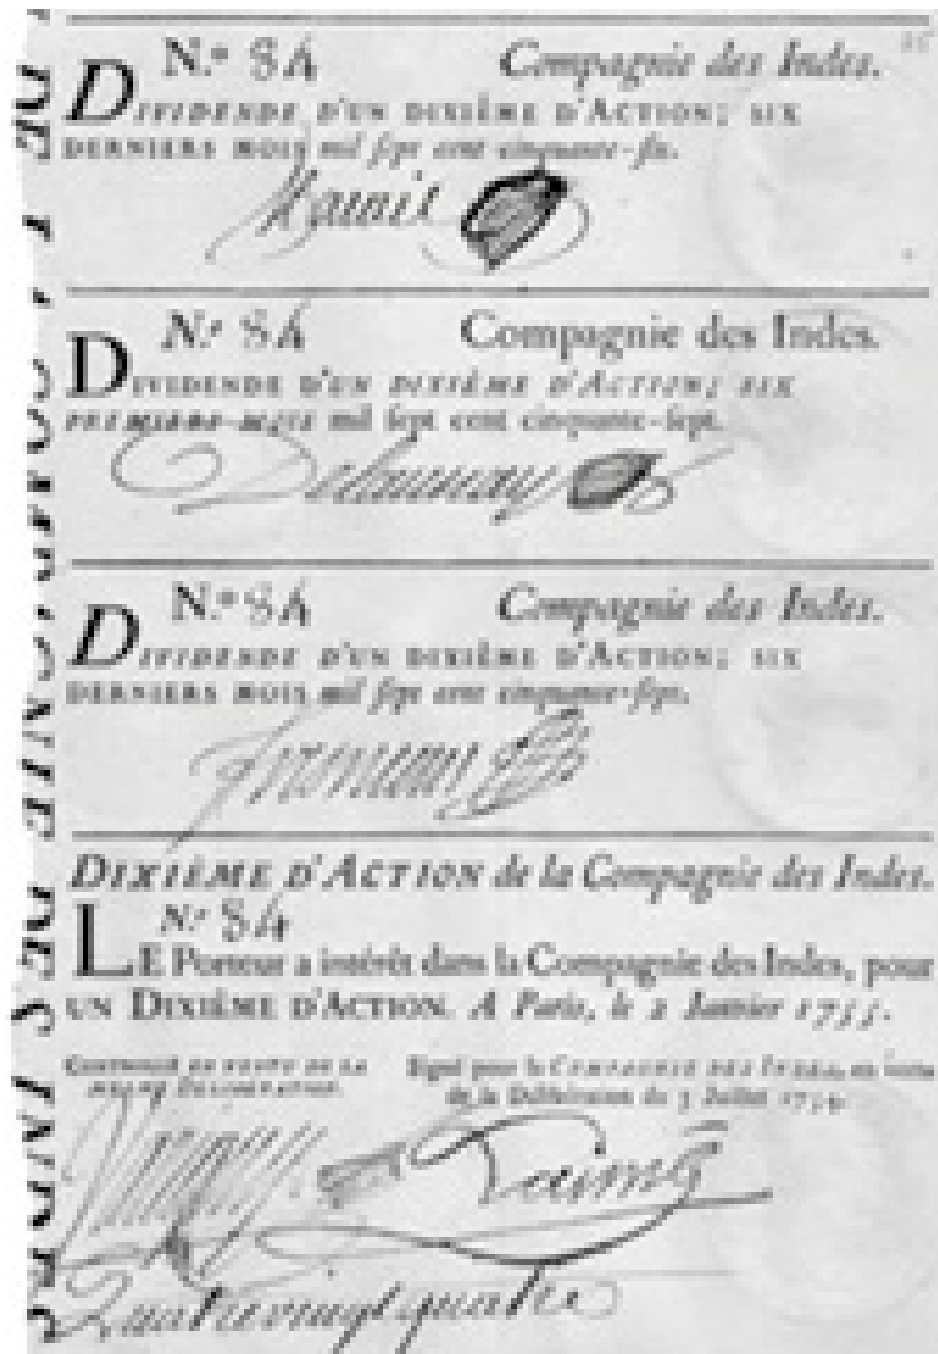 N.º 84 Compagnie des Indes.
DIVIDENDE D'UN DIXIÈME D'ACTION; SIX
DERNIERS MOIS mil sept cent cinquante-six.
N.º 84 Compagnie des Indes.
DIVIDENDE D'UN DIXIÈME D'ACTION; SIX
PREMIERS MOIS mil sept cent cinquante-sept.
Delaunay
N.º 84 Compagnie des Indes.
DIVIDENDE D'UN DIXIÈME D'ACTION; SIX
DERNIERS MOIS mil sept cent cinquante-sept.
DIXIÈME D'ACTION de la Compagnie des Indes.
N.º 84
LE Porteur a intérêt dans la Compagnie des Indes, pour
UN DIXIÈME D'ACTION. A Paris, le 2 Janvier 1755.
CONTROLLÉ EN VERTU DE LA Signé pour la COMPAGNIE DES INDES, en vertu
MESME DÉLIBÉRATION. de la Délibération du 3 Juillet 1754.
Quatrevingt quatre